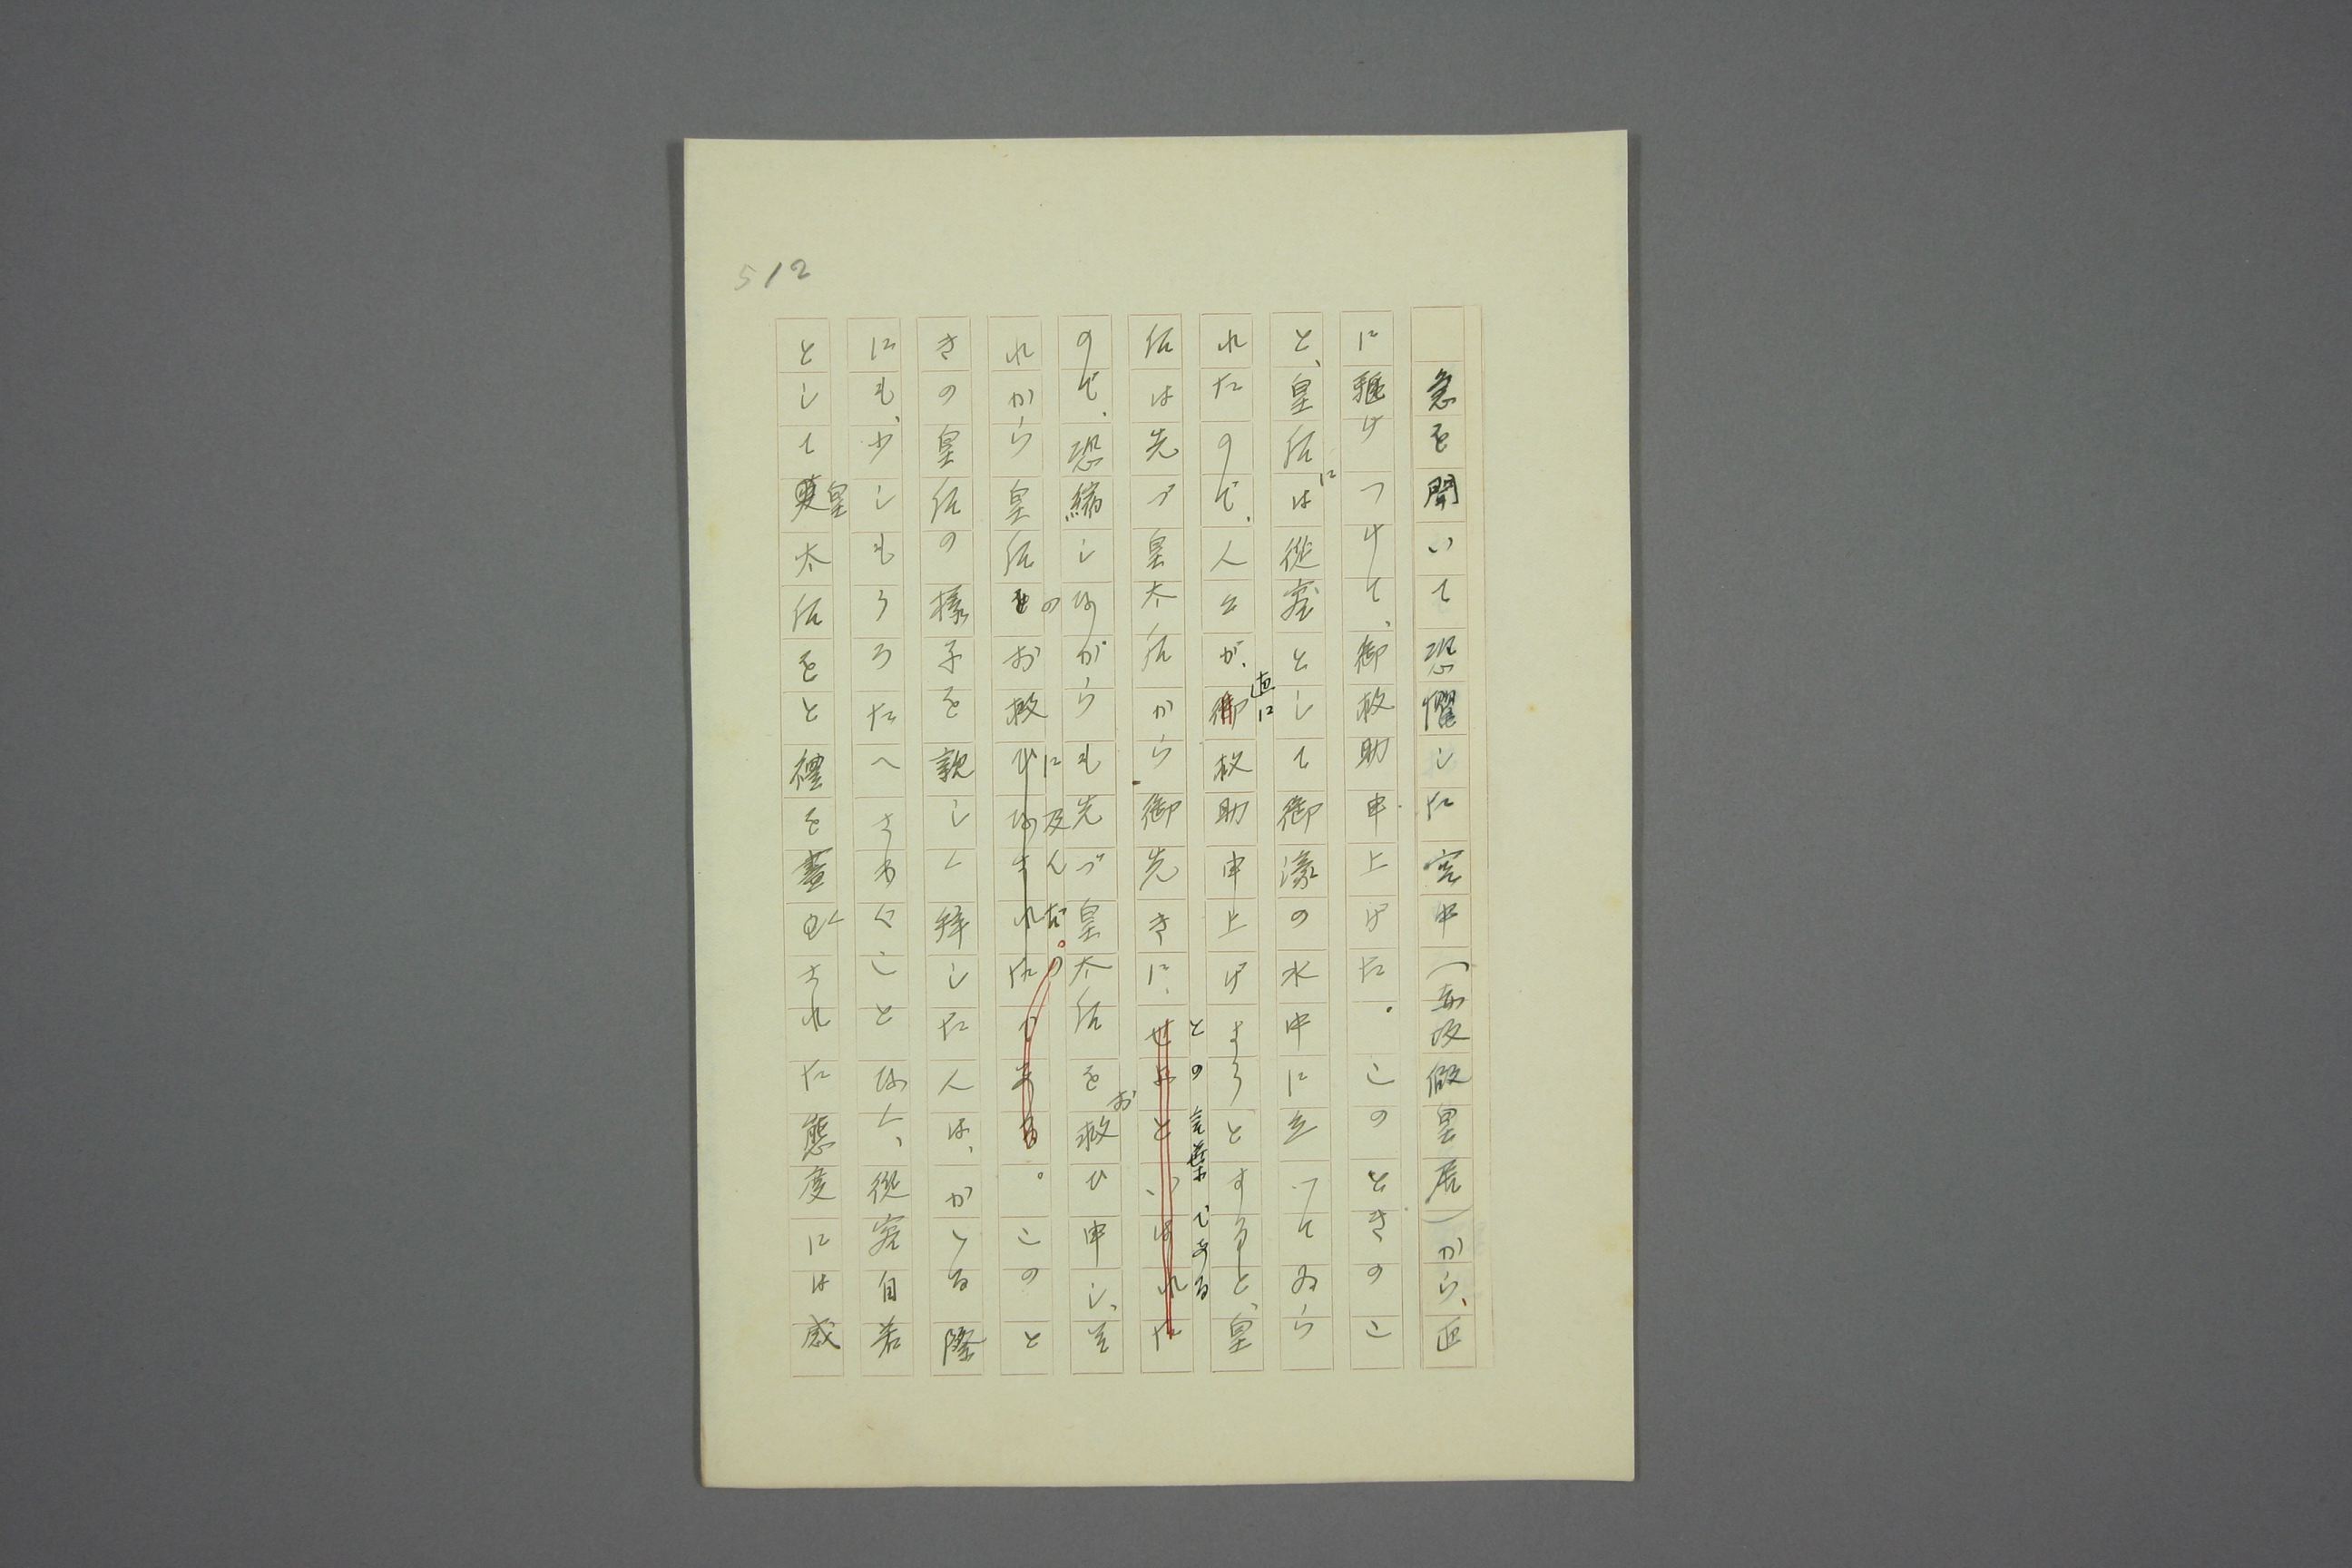 512
急を聞いて恐懼した宮中（赤坂假皇居）から、直
に驅けつけて、御救助申上げた。このときのこ
と、皇后には從容として御濠の水中に立つてゐら
れたので、人々が、直に救助申上げようとすると、皇
后は先づ皇太后から御先きに、との言葉である
ので、恐縮しながらも先づ皇太后をお救ひ申し、そ
れから皇后のお救に及んだ。このと
きの皇后の樣子を親しく拜した人は、かゝる際
にも、少しもうろたへさわぐことなく、從容自若
として皇太后をと禮を盡くされた態度には感